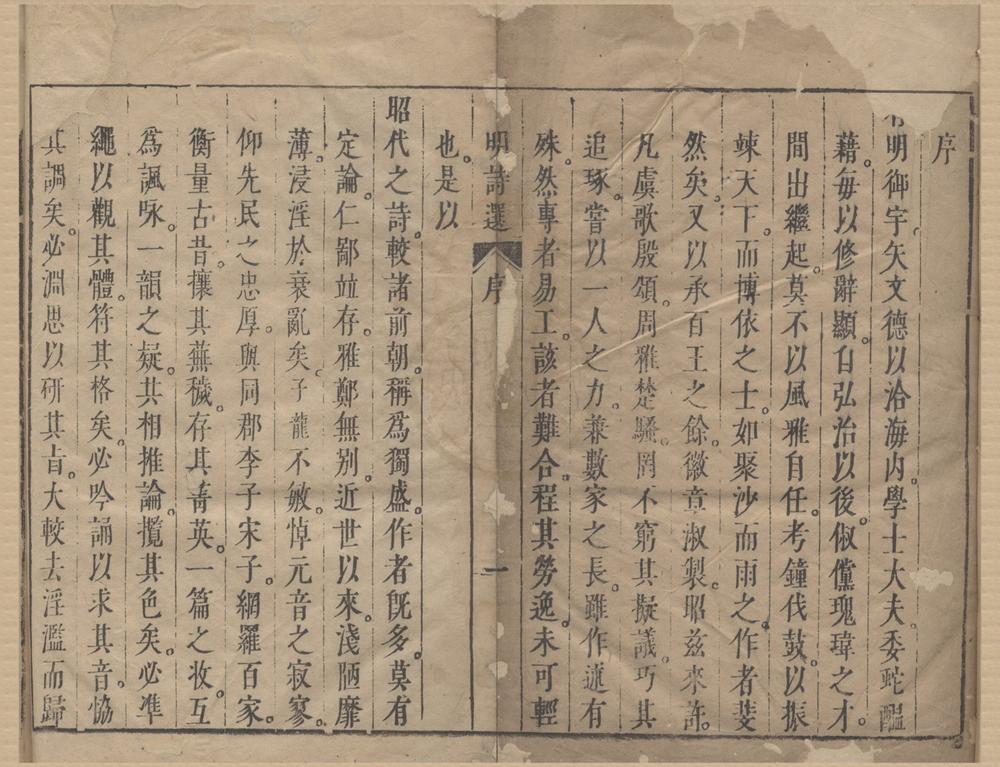 序
明御宇。矢文德以洽海内。學士大夫。委蛇醞
藉。每以修辭顯。自弘治以後。俶儻瑰瑋之才。
間出繼起。莫不以風雅自任。考鐘伐鼓。以振
竦天下。而博依之士。如聚沙而雨之。作者斐
然矣。又以承百王之餘。徽章淑製。昭茲來許。
凡虞歌殷頌。周雅楚騷。罔不窮其擬議。巧其
追琢。嘗以一人之力。兼數家之長。雖作述有
殊。然專者易工。該者難合。程其勞逸。未可輕
明詩選 序 一
也。是以
昭代之詩。較諸前朝。稱為獨盛。作者既多。莫有
定論。仁鄙竝存。雅鄭無別。近世以來。淺陋靡
薄。浸淫於衰亂矣。子龍不敏。悼元音之寂寥。
仰先民之忠厚。與同郡李子宋子。網羅百家。
衡量古昔。攘其蕪穢。存其菁英。一篇之收。互
為諷咏。一韻之疑。共相推論。攬其色矣。必準
繩以觀其體。符其格矣。必吟誦以求其音。協
其調矣。必淵思以研其旨。大較去淫濫而歸